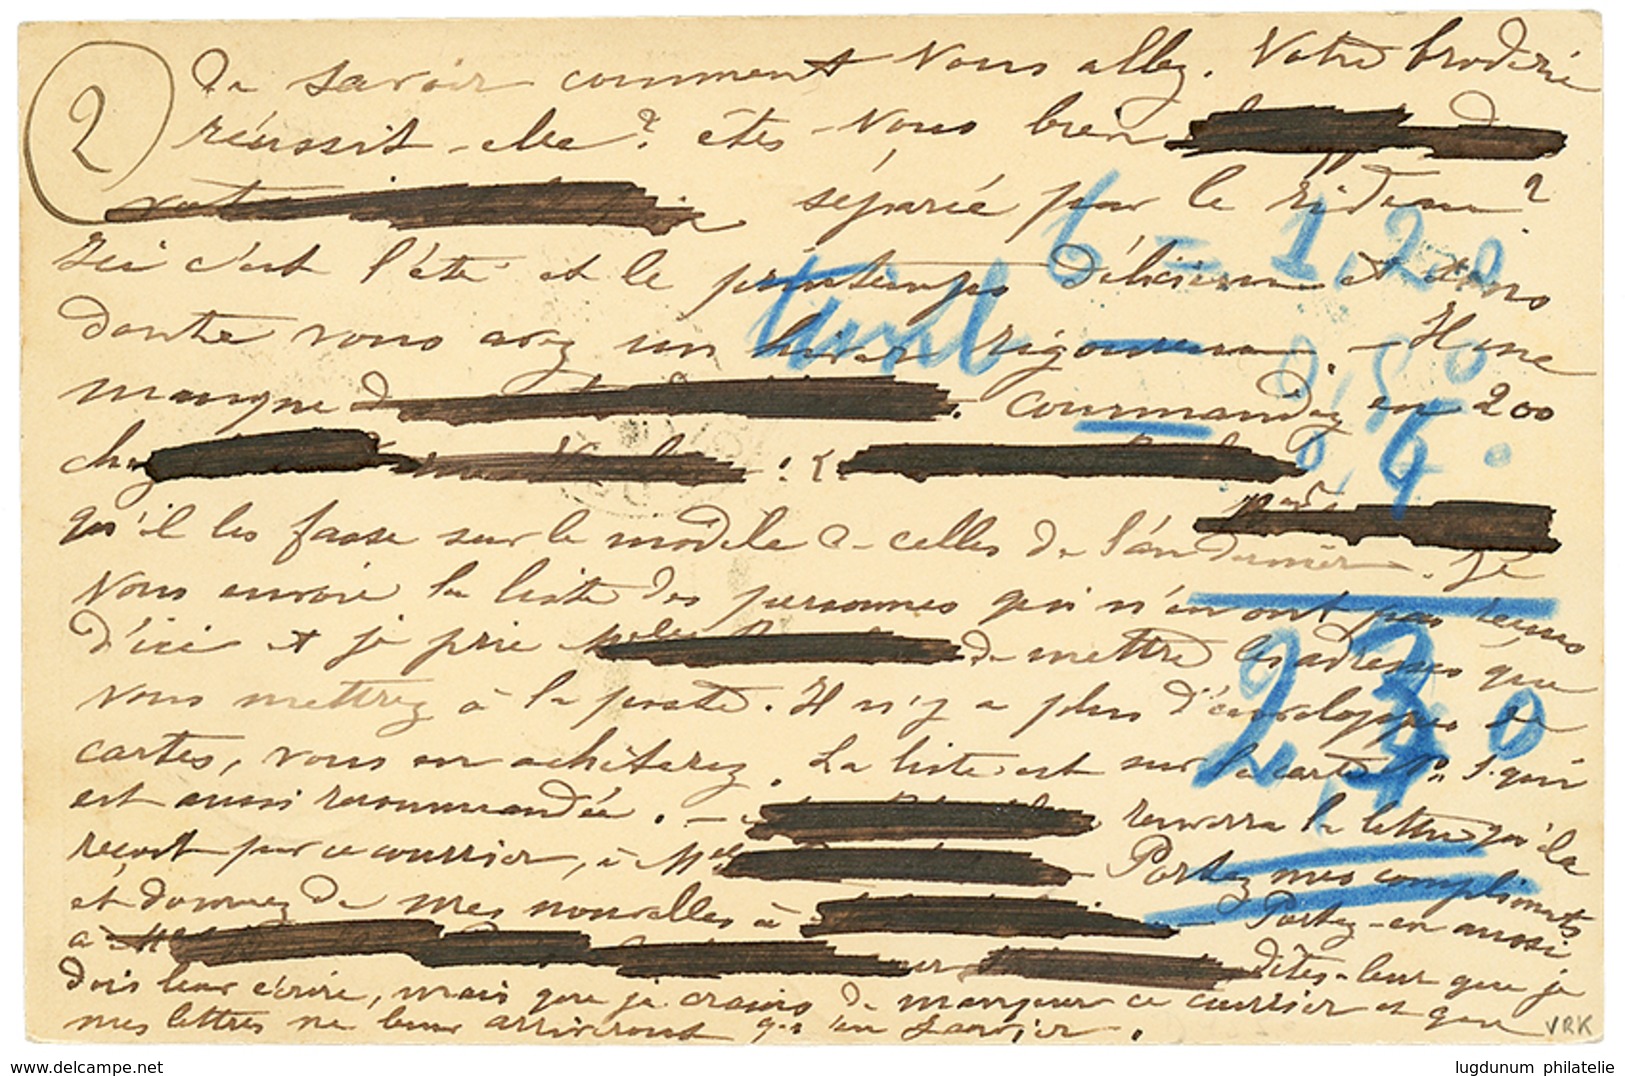 2
de savoir comment vous allez. Votre broderie
réussit-elle? êtes-vous bien
séparée par le rideau?
Ici c'est l'été et le printemps délicieux et
doute vous avez un hiver rigoureux. - Il me
manque d . Commandez en 200
chez
qu'il les fasse sur le modèle de celles de l'an dernier. Je
vous envoie la liste des personnes qui n'en ont pas
d'ici et je prie de mettre les adresses que
vous mettrez à la poste. Il n'y a plus d'enveloppes de
cartes, vous en achèterez. La liste est sur la carte No 1 qui
est aussi recommandée. - renverra la lettre qu'
reçoit par ce courrier, à Portez mes compliments
et donnez de mes nouvelles à Portez-en aussi
à Dites-leur que je
dois leur écrire, mais que je crains de manquer ce courrier et que
mes lettres ne leur arriveront qu'en Janvier.
6 - 1,20
2,30
VRK
www.delcampe.net
lugdunum philatelie